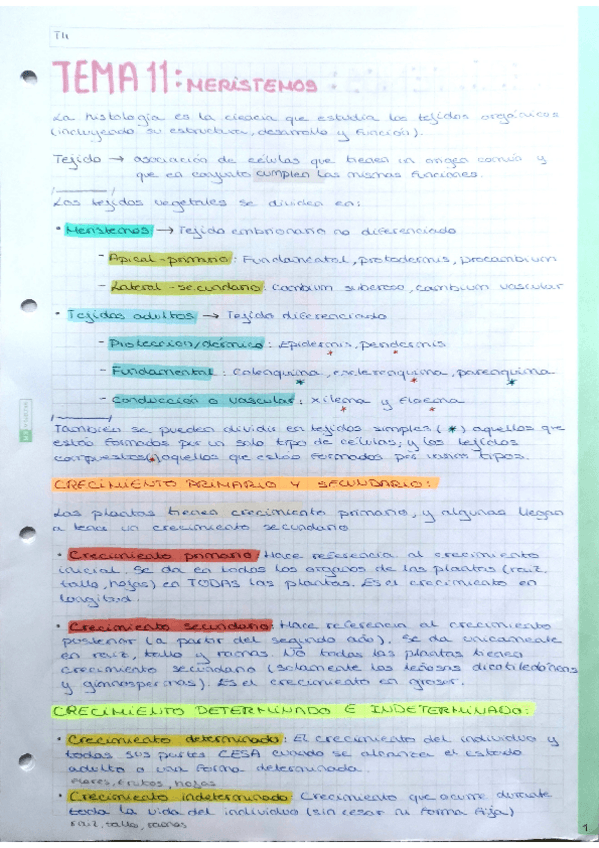 T11
TEMA 11: MERISTEMOS
La histología es la ciencia que estudia los tejidos orgánicos
(incluyendo su estructura, desarrollo y función).
Tejido → asociación de células que tienen un origen común y
que en conjunto cumplen las mismas funciones.
Los tejidos vegetales se dividen en:
• Meristemos → Tejido embrionario no diferenciado
- Apical-primario: Fundamental, protodermis, procambium
- Lateral-secundario: Cambium suberoso, cambium vascular
• Tejidos adultos → Tejido diferenciado
- Protección/dérmico: Epidermis, peridermis
* *
- Fundamental: Colenquima, esclerenquima, parenquima
* * *
- Conducción o vascular: Xilema y floema
* *
También se pueden dividir en tejidos simples (*) aquellos que
están formados por un solo tipo de células; y los tejidos
compuestos(*) aquellos que están formados por varios tipos.
CRECIMIENTO PRIMARIO Y SECUNDARIO:
Las plantas tienen crecimiento primario, y algunas llegan
a tener un crecimiento secundario
• Crecimiento primario: Hace referencia al crecimiento
inicial. Se da en todos los órganos de las plantas (raíz,
tallo, hojas) en TODAS las plantas. Es el crecimiento en
longitud.
• Crecimiento secundario: Hace referencia al crecimiento
posterior (a partir del segundo año). Se da únicamente
en raíz, tallo y ramas. No todas las plantas tienen
crecimiento secundario (solamente las leñosas dicotiledóneas
y gimnospermas). Es el crecimiento en grosor.
CRECIMIENTO DETERMINADO E INDETERMINADO:
• Crecimiento determinado: El crecimiento del individuo y
todas sus partes CESA cuando se alcanza el estado
adulto o una forma determinada.
Flores, frutos, hojas
• Crecimiento indeterminado: Crecimiento que ocurre durante
toda la vida del individuo (sin cesar ni forma fija)
raíz, tallo, ramas
1